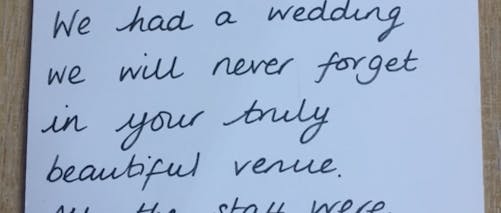 We had a wedding
we will never forget
in your truly
beautiful venue.
All the staff were